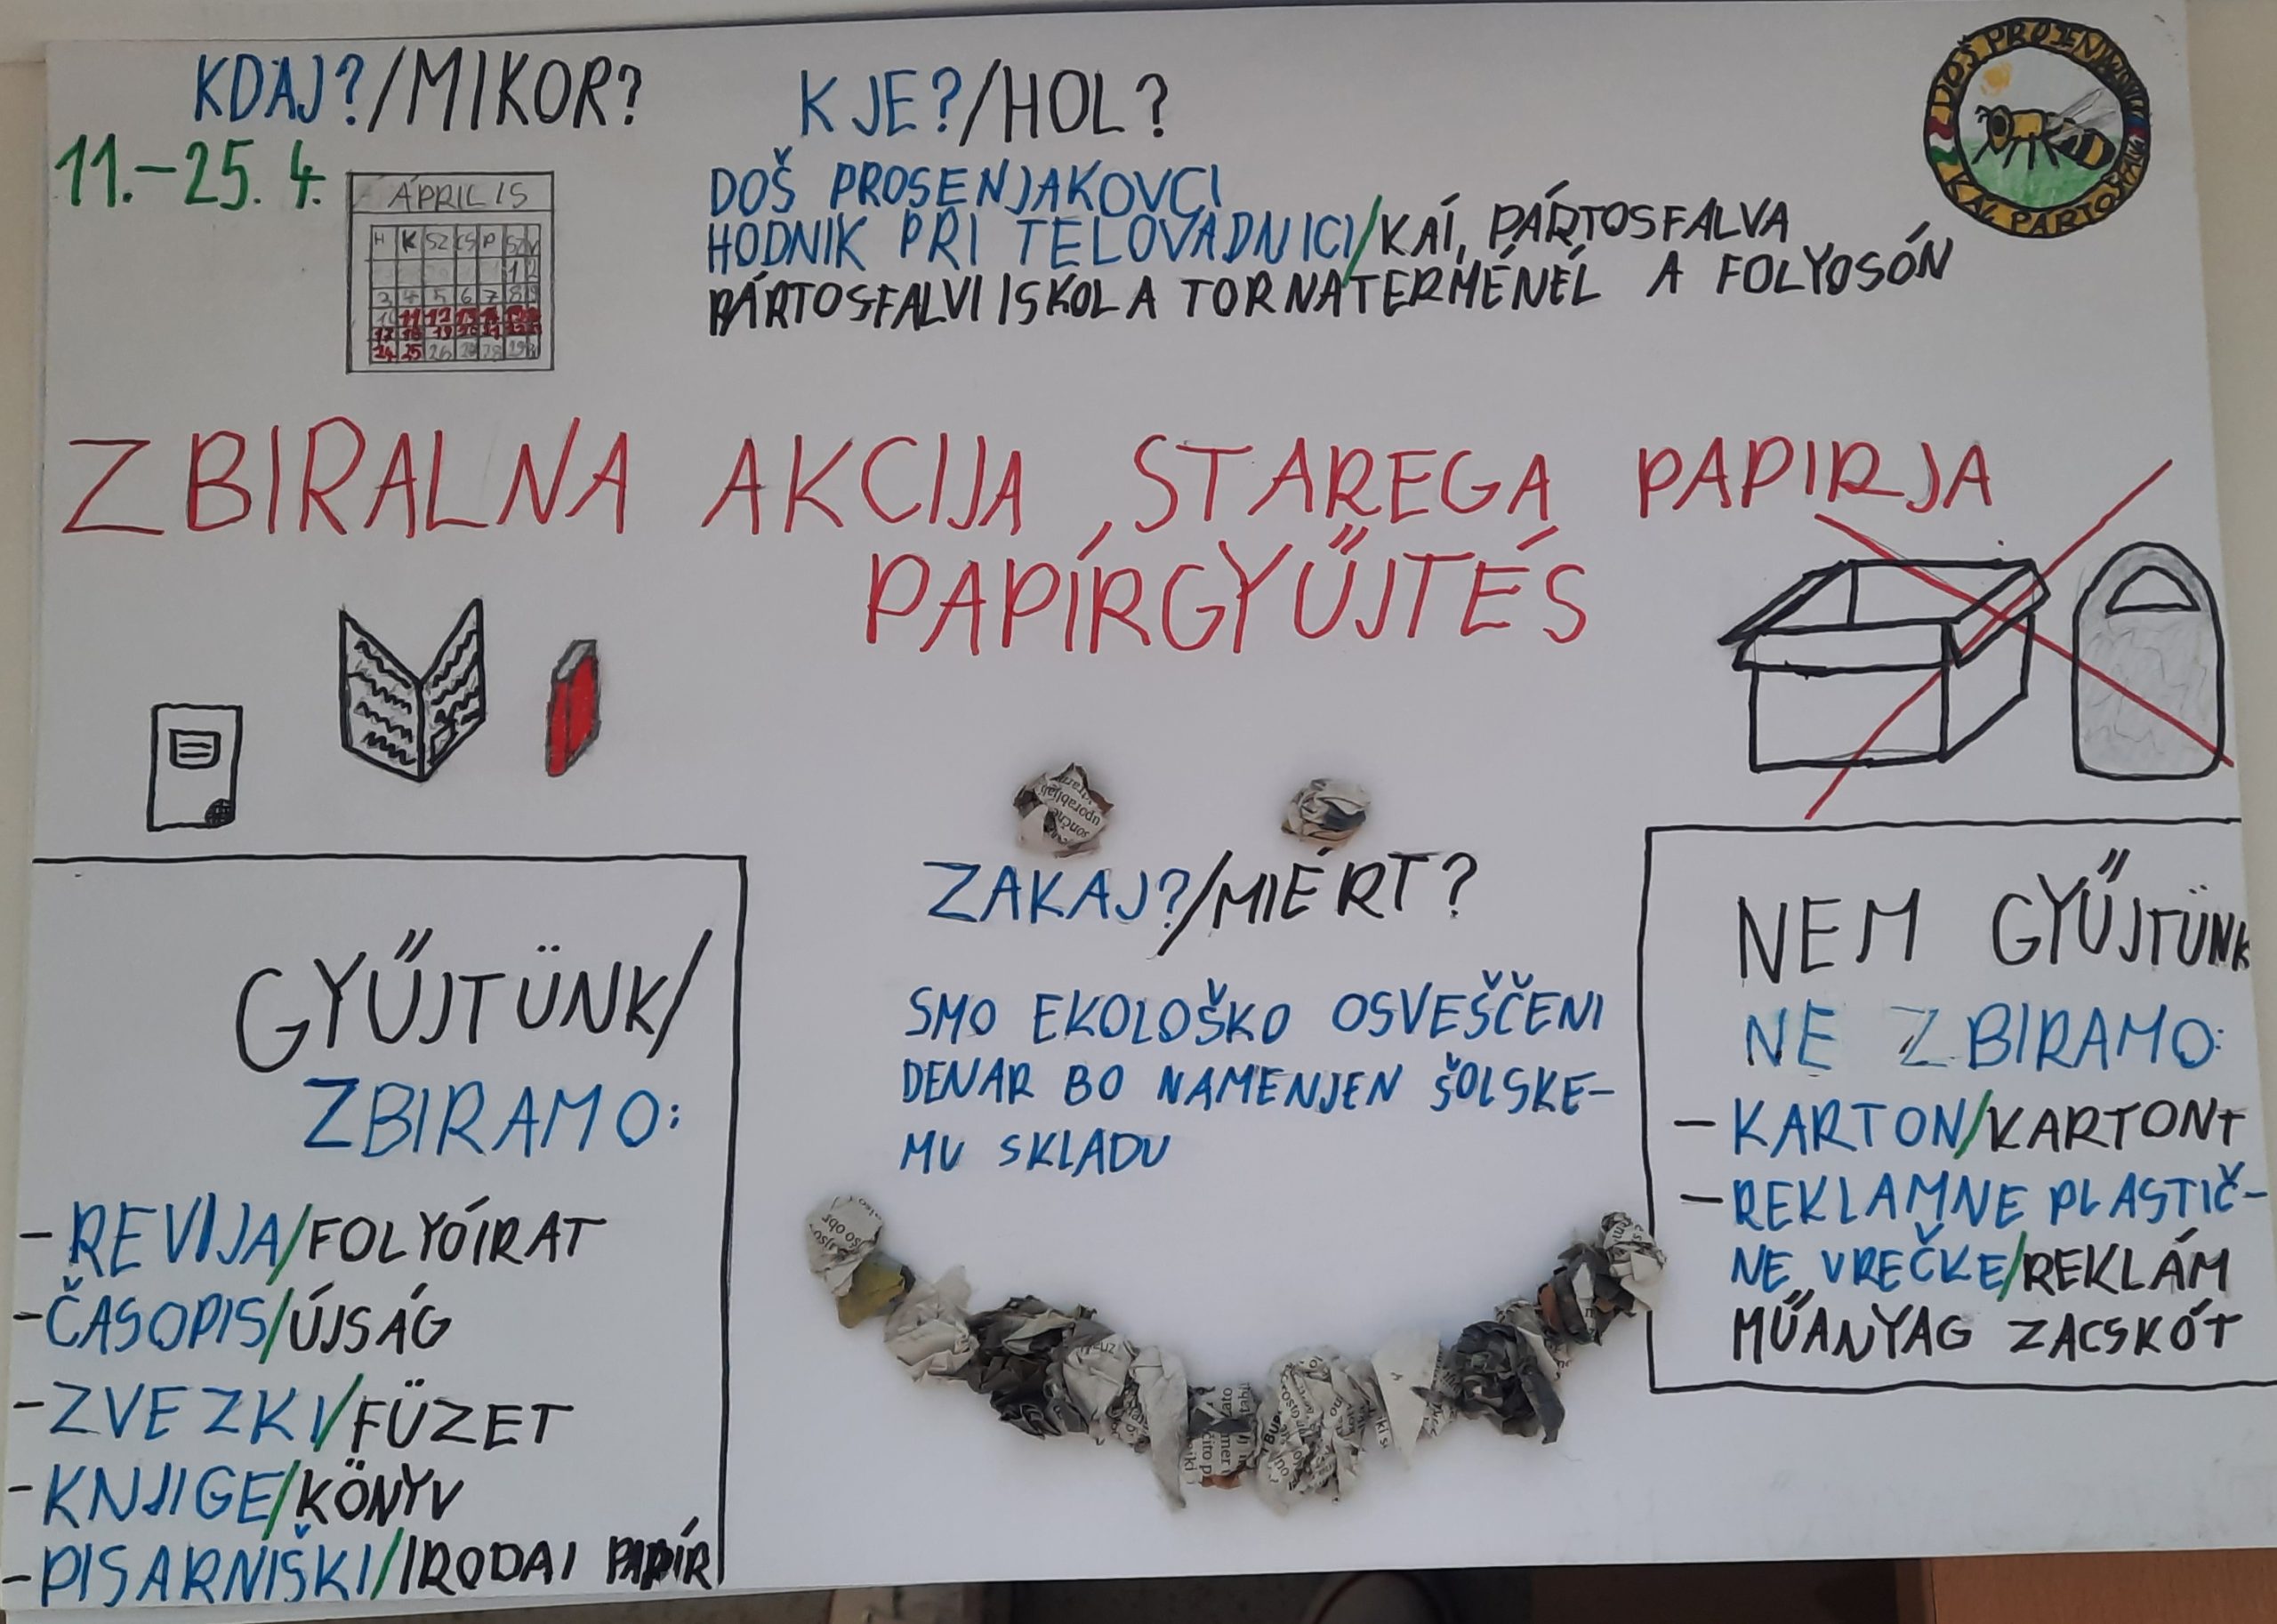 KDAJ?/MIKOR?
11.-25. 4.
ÁPRILIS
H K SZ CS P SZ V
1 2
3 4 5 6 7 8 9
10 11 12 13 14 15 16
17 18 19 20 21 22 23
24 25 26 27 28 29 30
KJE?/HOL?
DOŠ PROSENJAKOVCI
HODNIK PRI TELOVADNICI/KAI, PÁRTOSFALVA
PÁRTOSFALVI ISKOLA TORNATERMÉNÉL A FOLYOSÓN
ZBIRALNA AKCIJA STAREGA PAPIRJA
PAPÍRGYŰJTÉS
GYŰJTÜNK/
ZBIRAMO:
- REVIJA/FOLYÓÍRAT
- ČASOPIS/ÚJSÁG
- ZVEZKI/FÜZET
- KNJIGE/KÖNYV
- PISARNIŠKI/IRODAI PAPÍR
ZAKAJ?/MIÉRT?
SMO EKOLOŠKO OSVEŠČENI
DENAR BO NAMENJEN ŠOLSKE-
MU SKLADU
NEM GYŰJTÜNK
NE ZBIRAMO:
- KARTON/KARTONT
- REKLAMNE PLASTIČ-
NE VREČKE/REKLÁM
MŰANYAG ZACSKÓT